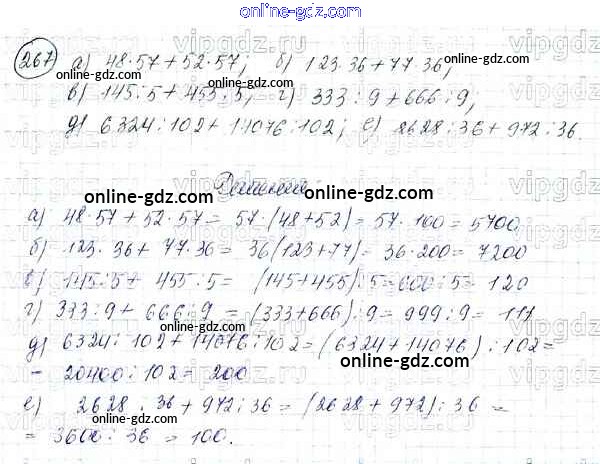 online-gdz.com
267 а) 48·57+52·57; б) 123·36+77·36;
online-gdz.com online-gdz.com
в) 145:5+455:5; г) 333:9+666:9;
online-gdz.com online-gdz.com
д) 6324:102+14076:102; е) 2628:36+972:36.
Решение:
online-gdz.com online-gdz.com
а) 48·57+52·57= 57·(48+52)= 57·100= 5700
online-gdz.com
б) 123·36+ 77·36= 36(123+77)= 36·200= 7200
online-gdz.com
в) 145:5+ 455:5= (145+455):5=600:5= 120
online-gdz.com
г) 333:9+ 666:9 = (333+666):9= 999:9= 111
online-gdz.com
д) 6324:102+14076:102=(6324+14076):102=
online-gdz.com
= 20400:102= 200
е) 2628:36+972:36=(2628+972):36=
online-gdz.com online-gdz.com
= 3600:36 = 100.
online-gdz.com